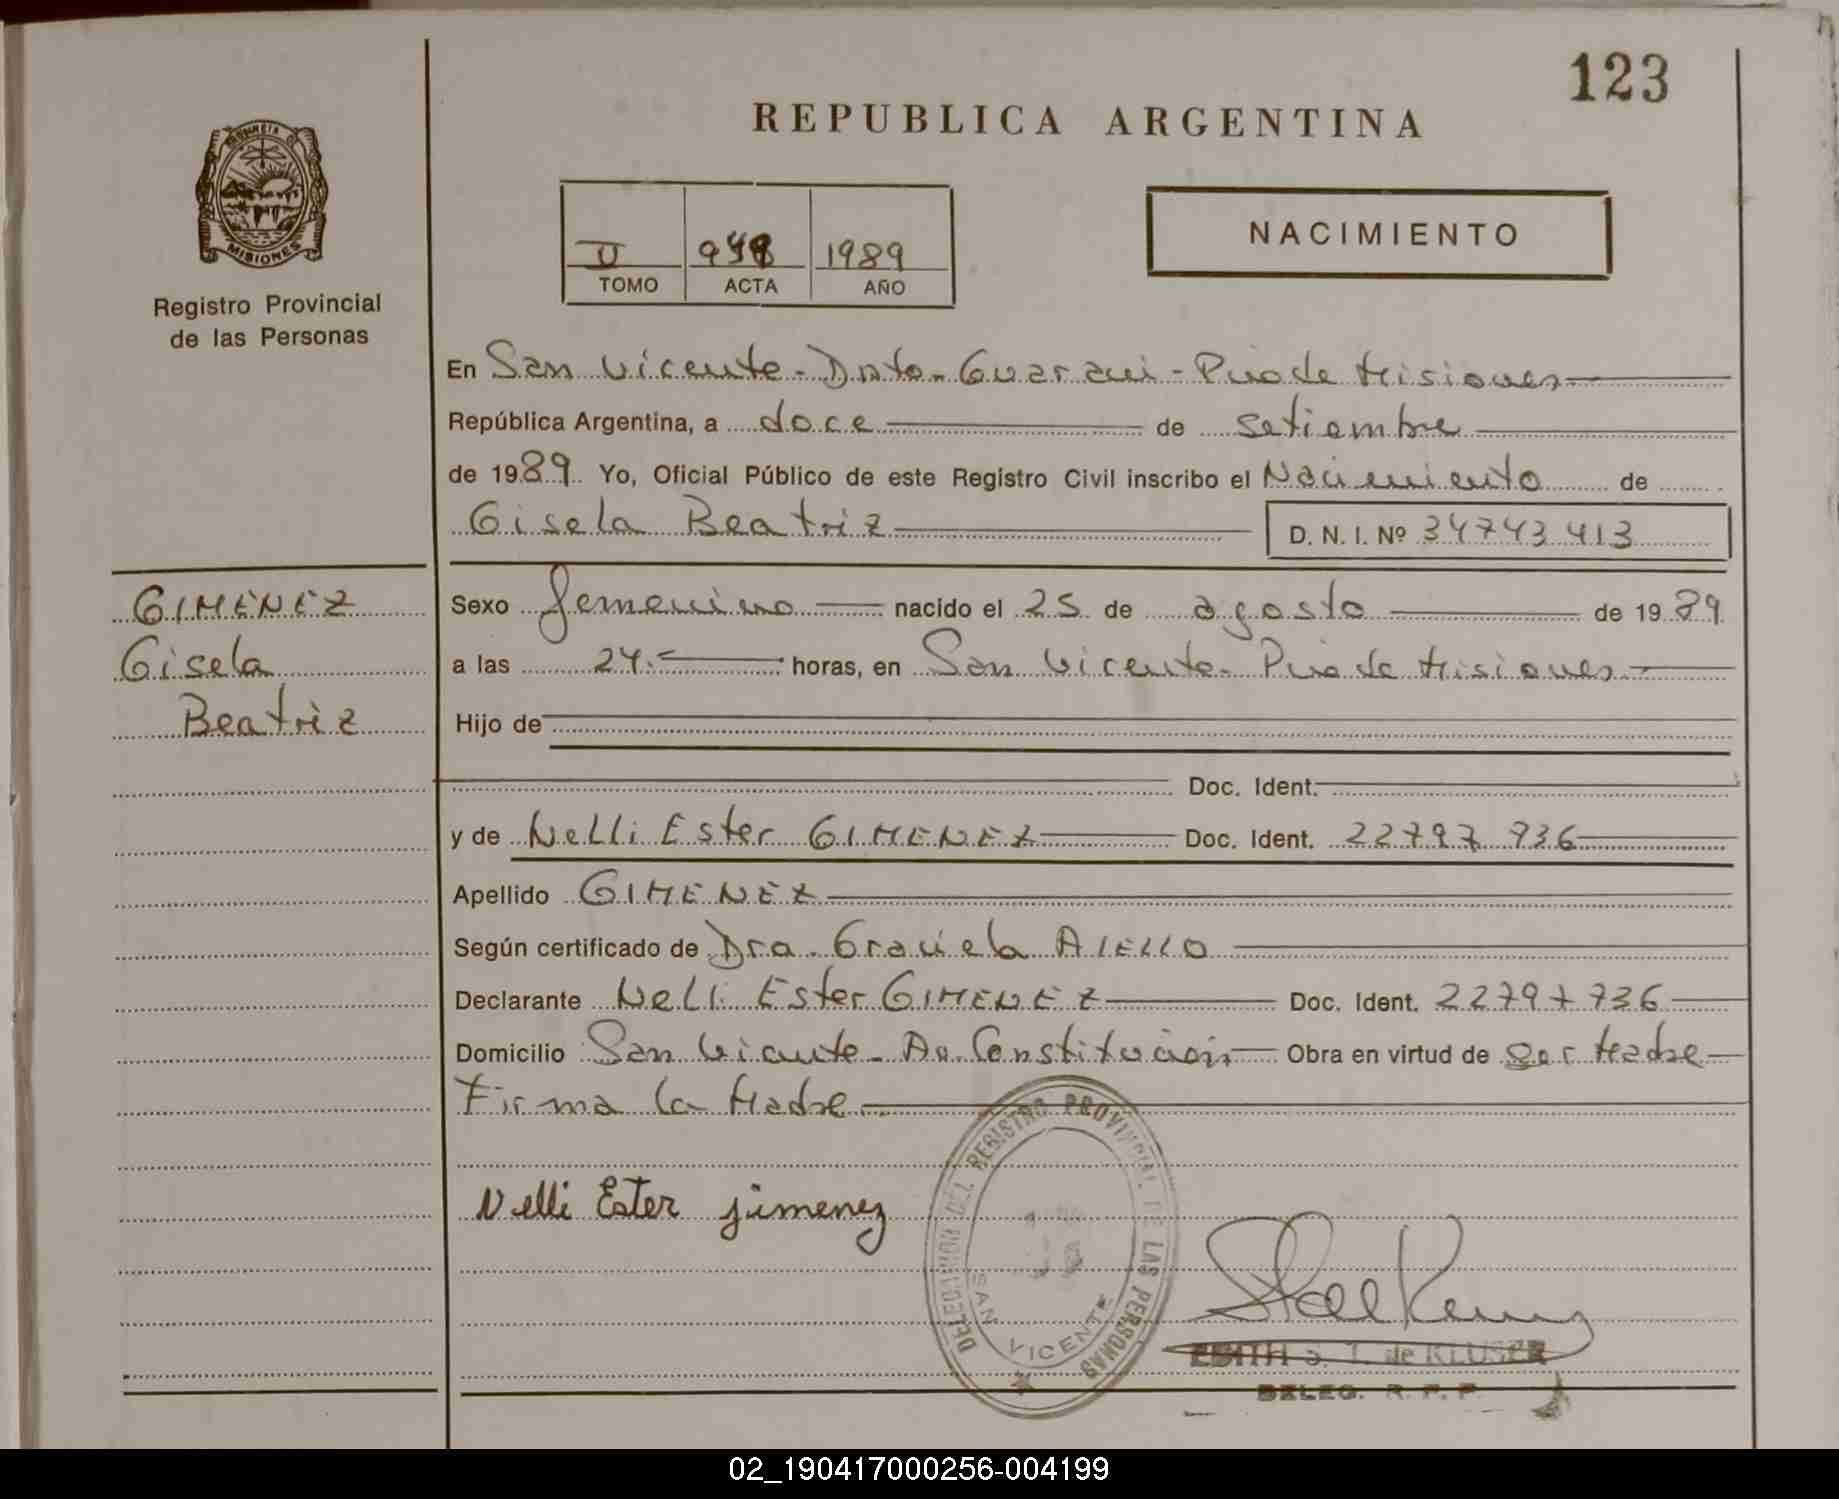 123
REPUBLICA ARGENTINA
BONETA
MISIONES
Registro Provincial
de las Personas
II 1989
TOMO ACTA AÑO
NACIMIENTO
En San Vicente - Dpto. Guarani - Pvia de Misiones
República Argentina, a doce de setiembre
de 1989. Yo, Oficial Público de este Registro Civil inscribo el Nacimiento de
Gisela Beatriz D. N. I. Nº 34743413
GIMENEZ
Gisela
Beatriz
Sexo femenino nacido el 25 de agosto de 1989
a las 24.- horas, en San Vicente - Pvia de Misiones
Hijo de
Doc. Ident.
y de Nelli Ester GIMENEZ Doc. Ident. 22797 736
Apellido GIMENEZ
Según certificado de Dra. Graciela AIELLO
Declarante Nelli Ester GIMENEZ Doc. Ident. 22797 736
Domicilio San Vicente - Av. Constitución Obra en virtud de ser Madre
Firma la Madre
Nelli Ester jimenez
DELEGACION DEL REGISTRO PROVINCIAL DE LAS PERSONAS
SAN VICENTE
EDITH S. T. de KLUSER
DELEG. R. P. P.
02_190417000256-004199